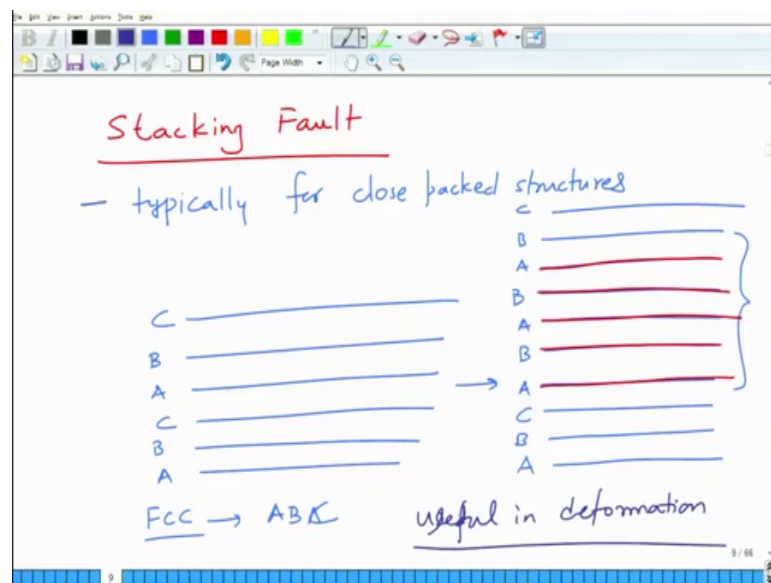 File Edit View Insert Actions Tools Help
B I
Page Width
Stacking Fault
— typically for close packed structures
C
B
A
C
B
A
FCC → ABC
→
C
B
A
B
A
B
A
C
B
A
useful in deformation
9/66
9